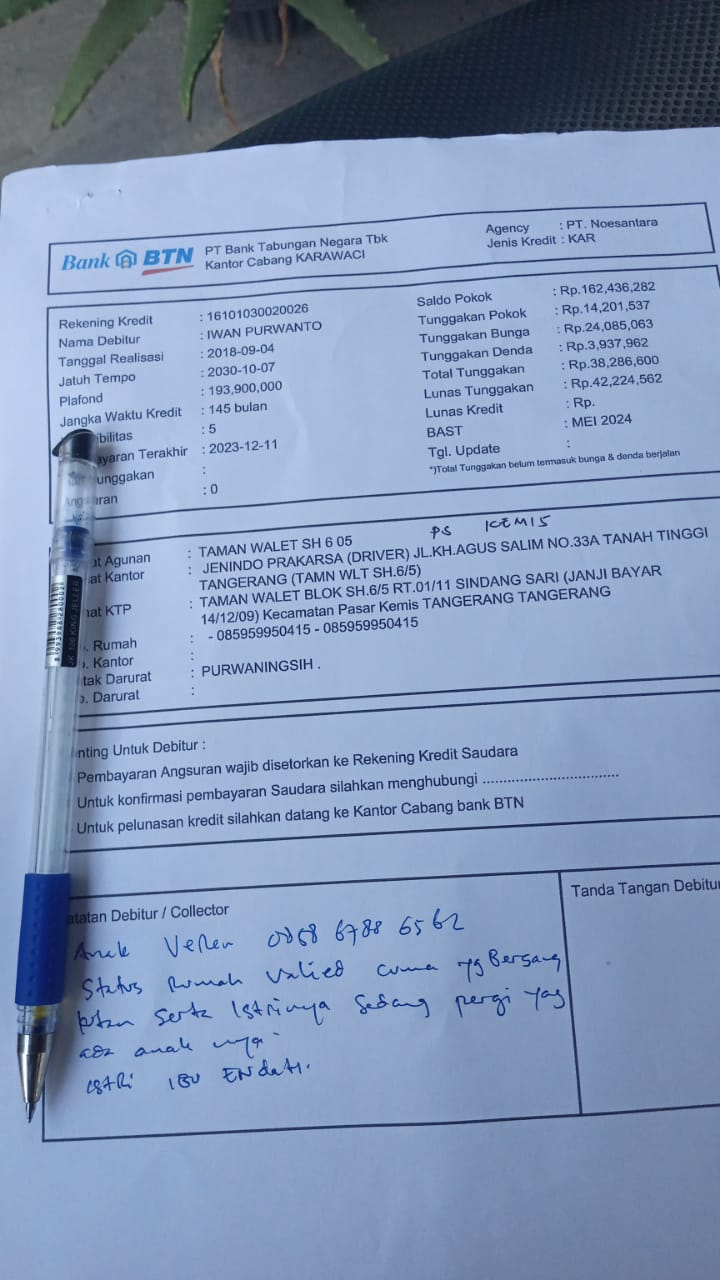 Bank BTN PT Bank Tabungan Negara Tbk
Kantor Cabang KARAWACI
Agency : PT. Noesantara
Jenis Kredit : KAR
Rekening Kredit : 16101030020026
Nama Debitur : IWAN PURWANTO
Tanggal Realisasi : 2018-09-04
Jatuh Tempo : 2030-10-07
Plafond : 193,900,000
Jangka Waktu Kredit : 145 bulan
ibilitas : 5
ayaran Terakhir : 2023-12-11
unggakan :
Angsuran : 0
Saldo Pokok : Rp.162,436,282
Tunggakan Pokok : Rp.14,201,537
Tunggakan Bunga : Rp.24,085,063
Tunggakan Denda : Rp.3,937,962
Total Tunggakan : Rp.38,286,600
Lunas Tunggakan : Rp.42,224,562
Lunas Kredit : Rp.
BAST : MEI 2024
Tgl. Update :
*)Total Tunggakan belum termasuk bunga & denda berjalan
PS KEMIS
at Agunan : TAMAN WALET SH 6 05
at Kantor : JENINDO PRAKARSA (DRIVER) JL.KH.AGUS SALIM NO.33A TANAH TINGGI
TANGERANG (TAMN WLT SH.6/5)
mat KTP : TAMAN WALET BLOK SH.6/5 RT.01/11 SINDANG SARI (JANJI BAYAR
14/12/09) Kecamatan Pasar Kemis TANGERANG TANGERANG
. Rumah : - 085959950415 - 085959950415
. Kantor :
tak Darurat : PURWANINGSIH .
o. Darurat :
nting Untuk Debitur :
Pembayaran Angsuran wajib disetorkan ke Rekening Kredit Saudara
Untuk konfirmasi pembayaran Saudara silahkan menghubungi ..................................
Untuk pelunasan kredit silahkan datang ke Kantor Cabang bank BTN
atatan Debitur / Collector
Tanda Tangan Debitu
Anak Veren 0858 6788 6562
Status Rumah Valied cuma yg Bersang
ktan serta Istrinya sedang pergi yag
ada anak nya
istri IBU ENdati.